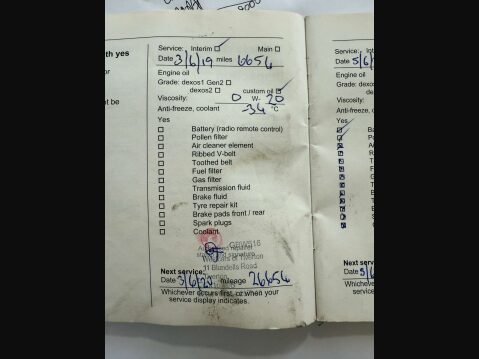 th yes
or
nt be
Service: Interim Main
Date 3/6/19 miles 6654
Engine oil
Grade: dexos1 Gen2
dexos2 custom oil
Viscosity: 0 W- 20
Anti-freeze, coolant -34 °C
Yes
Battery (radio remote control)
Pollen filter
Air cleaner element
Ribbed V-belt
Toothed belt
Fuel filter
Gas filter
Transmission fluid
Brake fluid
Tyre repair kit
Brake pads front / rear
Spark plugs
Coolant
GBW516
signature
of Tiverton
11 Blundells Road
Tiverton
Next service:
Date 3/6/20 mileage 26654
Whichever occurs first, or when your
service display indicates.
Service: Int
Date 5/6/
Engine oil
Grade: de
Viscosity:
Anti-freeze
Yes
Next serv
Date 5/6
Whicheve
servic